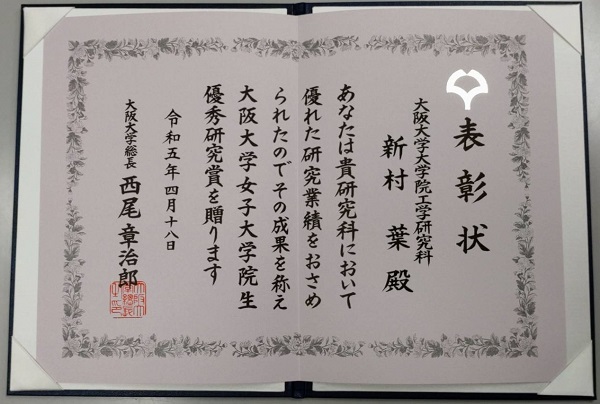 表彰状
大阪大学大学院工学研究科
新村 葉 殿
あなたは貴研究科において
優れた研究業績をおさめ
られたのでその成果を称え
大阪大学女子大学院生
優秀研究賞を贈ります
令和五年四月十八日
大阪大学総長 西尾章治郎